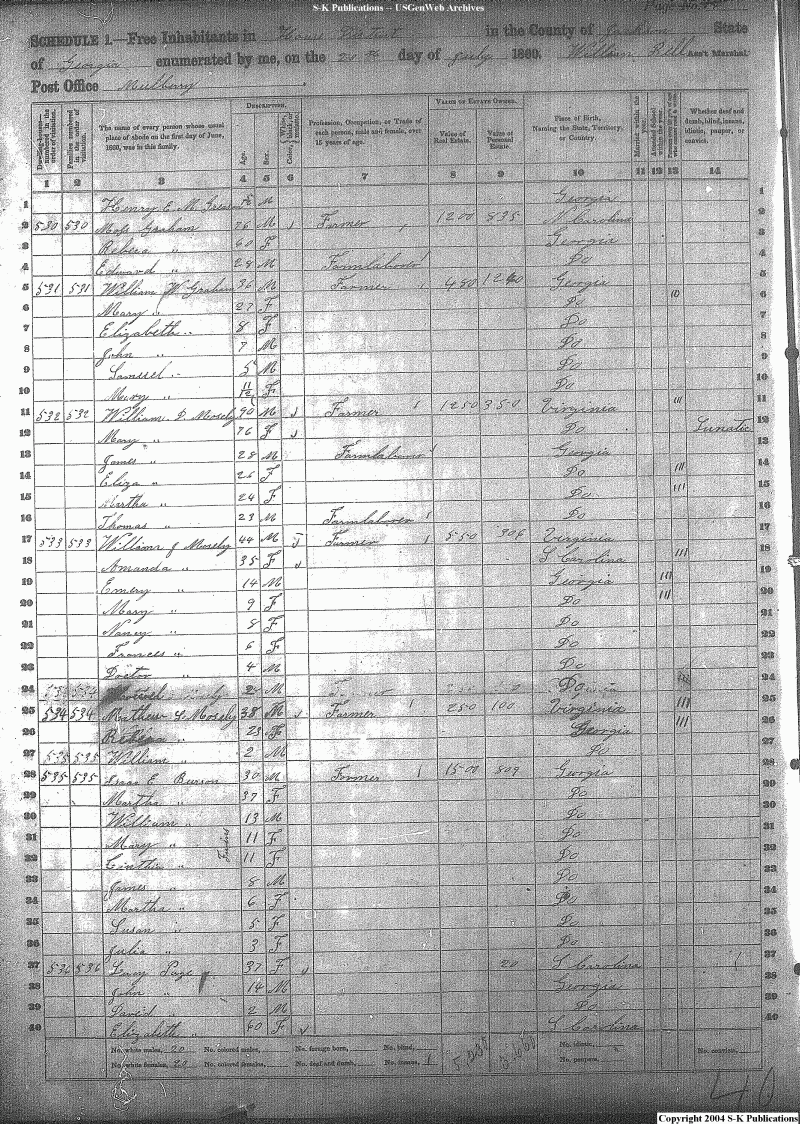 S-K Publications -- USGenWeb Archives
Page No.
SCHEDULE 1.—Free Inhabitants in House District in the County of Jackson State
of Georgia enumerated by me, on the 20th day of July 1860. William Bell Ass't Marshal.
Post Office Mulberry
Dwelling-houses—numbered in the order of visitation.
Families numbered in the order of visitation.
The name of every person whose usual place of abode on the first day of June, 1860, was in this family.
DESCRIPTION.
Age.
Sex.
Color, White, black, or mulatto.
Profession, Occupation, or Trade of each person, male and female, over 15 years of age.
VALUE OF ESTATE OWNED.
Value of Real Estate.
Value of Personal Estate.
Place of Birth, Naming the State, Territory, or Country.
Married within the year.
Attended School within the year.
Whether deaf and dumb, blind, insane, idiotic, pauper, or convict.
1 2 3 4 5 6 7 8 9 10 11 12 13 14
1 Henry E. M. M Georgia 1
2 530 530 Graham 26 M Farmer 1200 535 N Carolina 2
3 Rebeca " 60 F Georgia 3
4 Edward " 24 M Farmlaborer Do 4
5 531 531 William W Graham 36 M Farmer 480 1260 Georgia 5
6 Mary " 27 F Do 6
7 Elizabeth " 8 F Do 7
8 John " 7 M Do 8
9 Samuel " 5 M Do 9
10 Mary " 11/12 F Do 10
11 532 532 William D Mosely 90 M Farmer 1250 350 Virginia 11
12 Mary " 76 F Do Lunatic 12
13 James " 28 M Farmlaborer Georgia 13
14 Eliza " 26 F Do 14
15 Martha " 24 F Do 15
16 Thomas " 23 M Farmlaborer Do 16
17 533 533 William J Mosely 44 M Farmer 550 306 Virginia 17
18 Amanda " 35 F S Carolina 18
19 Emery " 14 M Georgia 19
20 Mary " 9 F Do 20
21 Nancy " 8 F Do 21
22 Frances " 6 F Do 22
23 Doctor " 4 M Do 23
24 534 2 M Do 24
25 534 534 Mathew S Mosely 38 M Farmer 250 100 Virginia 25
26 " 23 F Georgia 26
27 535 535 William " 2 M Do 27
28 535 535 Isaac E. Burson 30 M Farmer 1500 809 Georgia 28
29 Martha " 37 F Do 29
30 William " 13 M Do 30
31 Mary " 11 F Do 31
32 Cinthia " 11 F Do 32
33 James " 8 M Do 33
34 Martha " 6 F Do 34
35 Susan " 5 F Do 35
36 Julia " 3 F Do 36
37 536 536 Page 37 F 20 S Carolina 37
38 John " 14 M Georgia 38
39 David " 2 M Do 39
40 Elizabeth " 60 F S Carolina 40
No. white males, 20 No. colored males, No. foreign born, No. blind, No. idiotic,
No. white females, 20 No. colored females, No. deaf and dumb, No. insane, 1 No. paupers, No. convicts,
40
Copyright 2004 S-K Publications